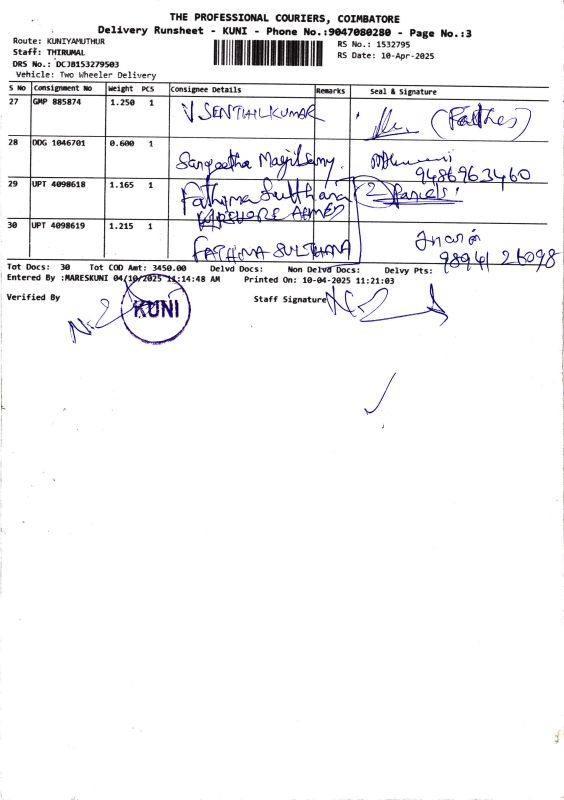 THE PROFESSIONAL COURIERS, COIMBATORE
Delivery Runsheet - KUNI - Phone No.:9047080280 - Page No.:3
Route: KUNIYAMUTHUR
RS No.: 1532795
Staff: THIRUMAL
RS Date: 10-Apr-2025
DRS No.: DCJB153279503
Vehicle: Two Wheeler Delivery
S No Consignment No Weight PCS Consignee Details Remarks Seal & Signature
27 GMP 885874 1.250 1 V SENTHILKUMAR (Father)
28 DDG 1046701 0.600 1 Sangeetha Magilsamy.
9486963460
29 UPT 4098618 1.165 1 Fathima Sulthana 2 Parcels
AHMED
30 UPT 4098619 1.215 1 FATHIMA SULTHANA
98941 26098
Tot Docs: 30 Tot COD Amt: 3450.00 Delvd Docs: Non Delvd Docs: Delvy Pts:
Entered By :MARESKUNI 04/10/2025 11:14:48 AM Printed On: 10-04-2025 11:21:03
Verified By Staff Signature
KUNI